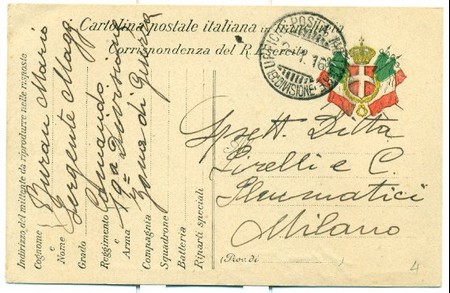 Cartolina postale italiana in franchigia
Corrispondenza del R. Esercito
UFFICIO POSTA MILITARE
DIVISIONE
Indirizzo del mittente da riprodurre nelle risposte
Cognome Buran Mario
e
Nome
Grado Sergente Magg.
Reggimento
e
Arma 19a Divisione
Compagnia Zona di Guerra
Squadrone
Batteria
Riparti speciali
Spett. Ditta
Pirelli e C.
Pneumatici
Milano
(Prov. di
4